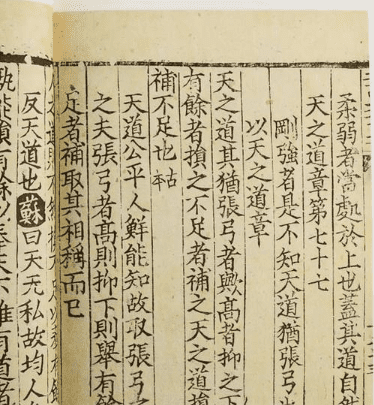 柔弱者當處於上也蓋其道自然
天之道章第七十七
剛強者是不知天道猶張弓
以天之道章
天之道其猶張弓者歟高者抑之下
有餘者損之不足者補之天之道損
補不足也古本
天道公平人鮮能知故取張弓之
之夫張弓者高則抑下則舉有餘
足者補取其相稱而已
反天道也蘇曰天无私故均人
孰能損有餘以奉天下唯有道者